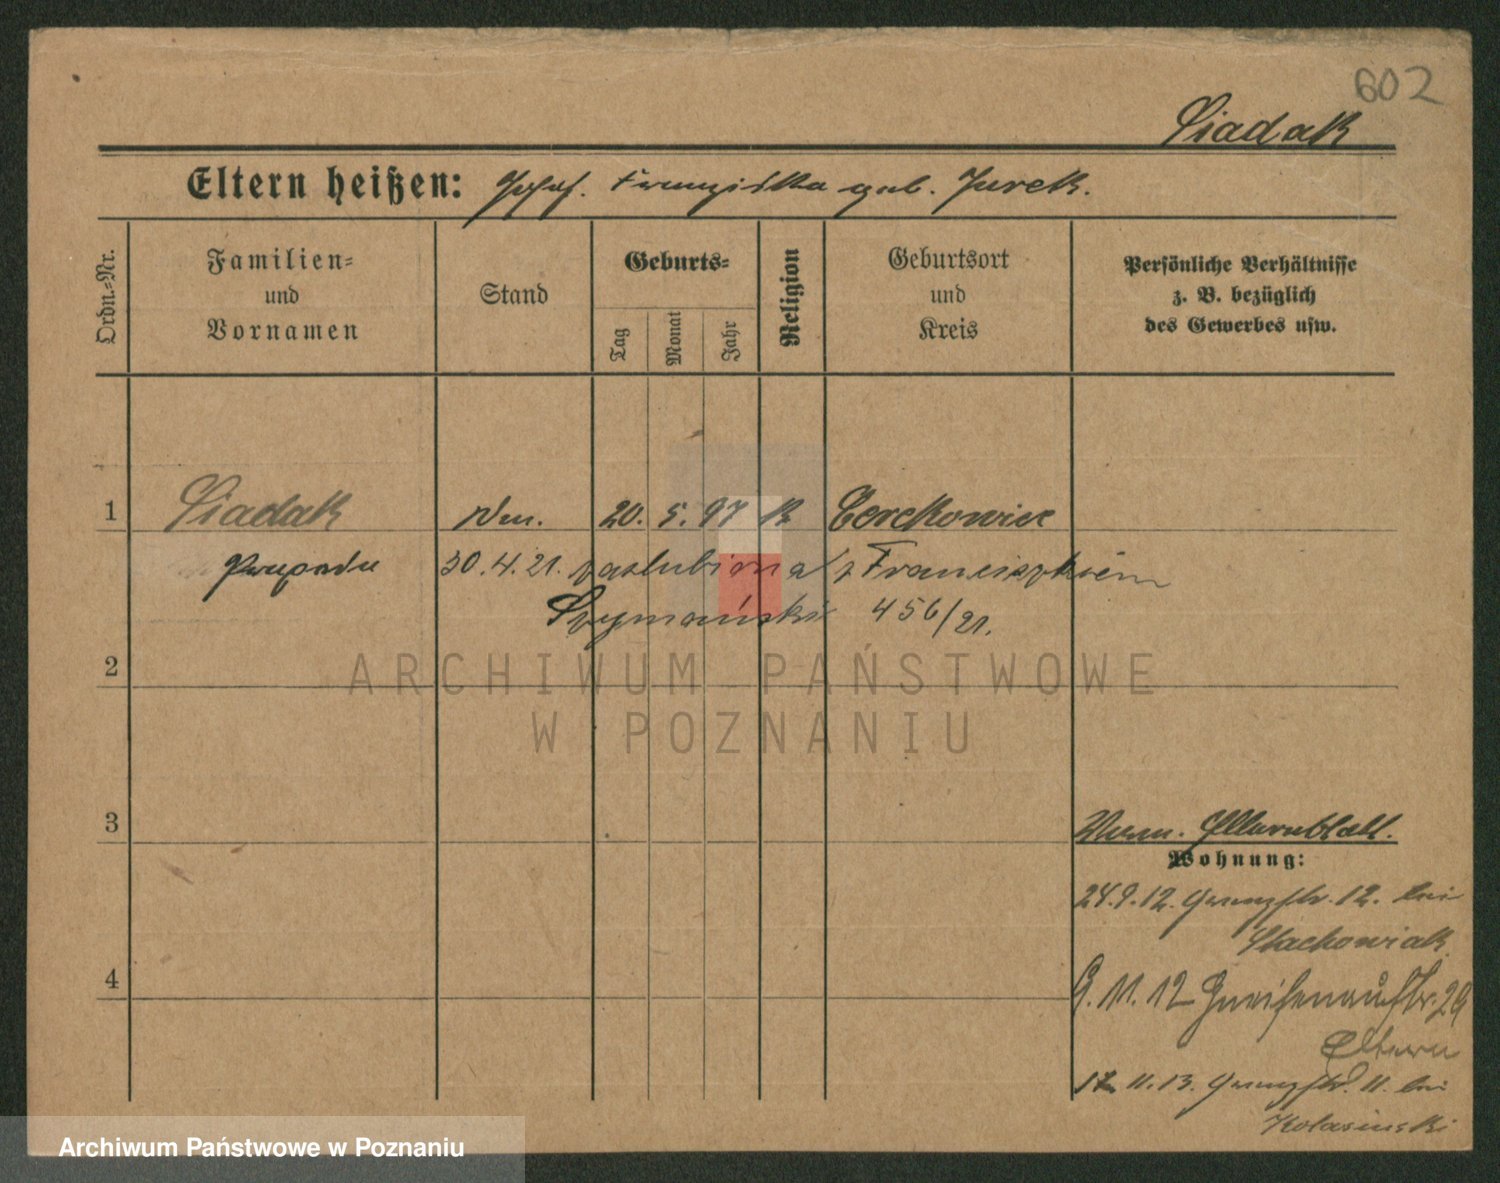 602
Siadak
Eltern heißen: Josef. Franziska geb. Jurek.
Ordn.-Nr.
Familien-
und
Vornamen
Stand
Geburts-
Tag
Monat
Jahr
Religion
Geburtsort
und
Kreis
Persönliche Verhältnisse
z. B. bezüglich
des Gewerbes usw.
1 Siadak 20. 5. 97 k Cerekowice
30.4.21. zaślubiona z Franciszkiem
Szymański 456/21.
2
ARCHIWUM PAŃSTWOWE
W POZNANIU
3
Elternblatt.
Wohnung:
24.9.12. 12. bei
Stachowiak
9.11.12 Gneisenaustr. 29
Eltern
17.11.13. 11. bei
Kolasinski
4
Archiwum Państwowe w Poznaniu